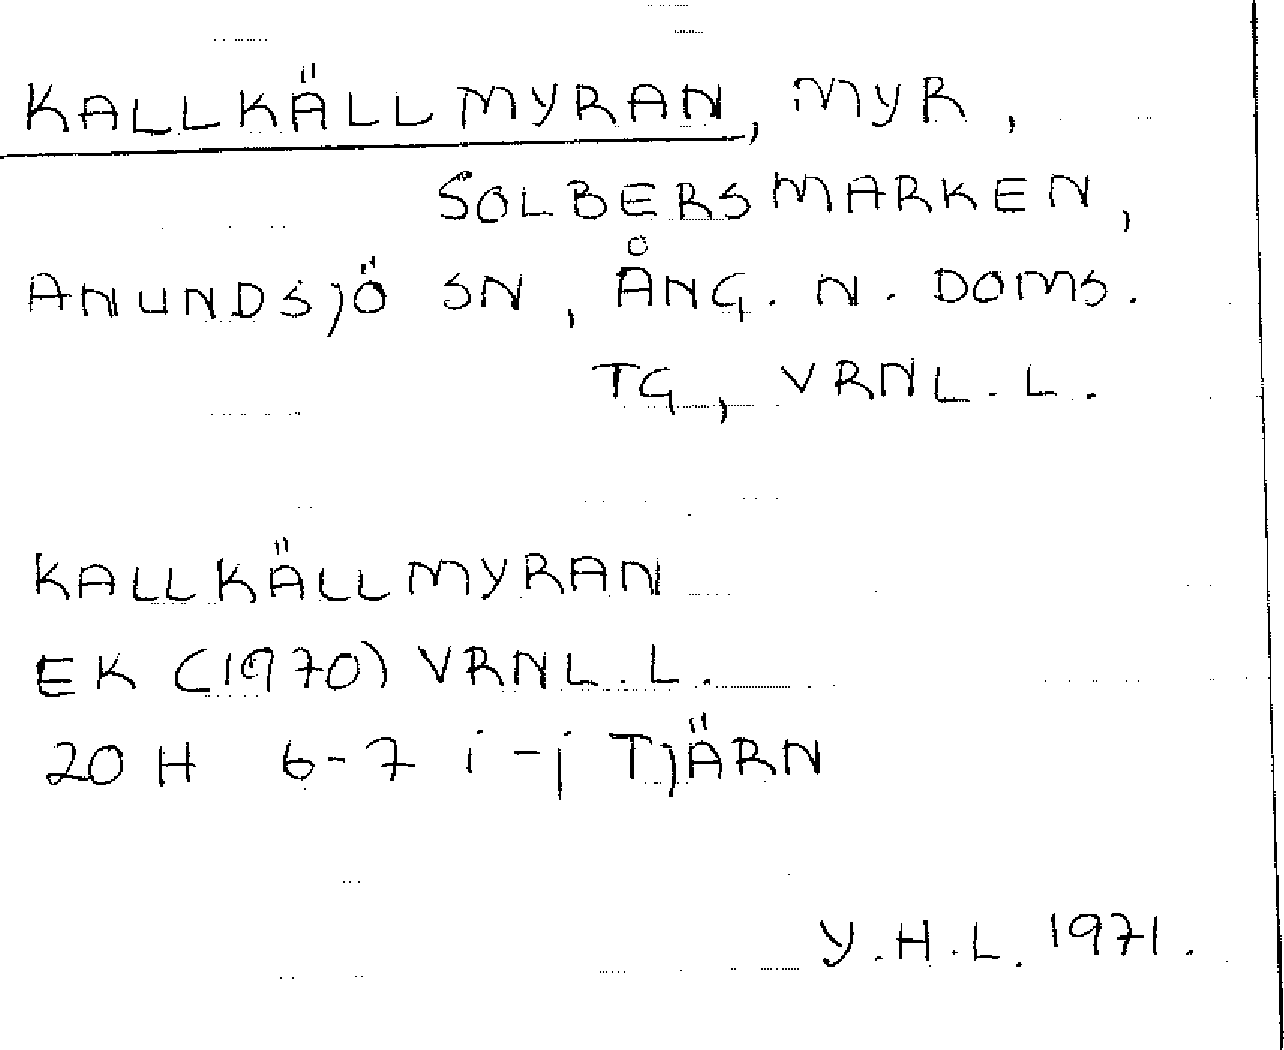 KALLKÄLLMYRAN, MYR,
SOLBERSMARKEN,
ANUNDSJÖ SN, ÅNG. N. DOMS.
TG, VRNL. L.
KALLKÄLLMYRAN
EK (1970) VRNL. L.
20 H 6-7 i-j TJÄRN
Y.H.L. 1971.